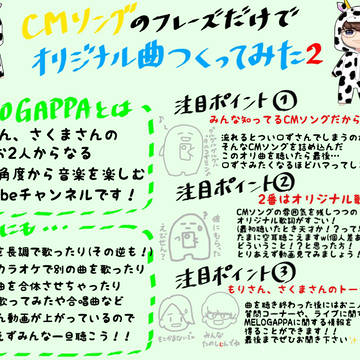 CMソングのフレーズだけで
オリジナル曲つくってみた2
LOGAPPAとは、
ん、さくまさんの
2人からなる
角度から音楽を楽しむ
beチャンネルです！
にも…
を長調で歌ったり(その逆も！)
カラオケで別の曲を歌ったり
曲を合体させちゃったり
歌ってみたや合唱曲など
ん動画が上がっているので
えずみんな一旦聴こう！！
注目ポイント①
みんな知ってるCMソングだから
流れるとつい口ずさんでしまうの
そんなCMソングを詰め込んだ
このオリ曲を聴いたら最後…
口ずさみたくなるほどハマってし
注目ポイント②
2番はオリジナル歌
CMソングの雰囲気を残しつつの
オリジナル歌詞がすごい！
(最初聴いたとき天才か！？って思
たまに空耳さえますw(個人差あ
どういうこと！？と思った方！
とりあえず動画見てみましょう！
注目ポイント③
もりさん、さくまさんのトー
曲を聴き終わった後にはお二人
質問コーナーや、ライブに関す
MELOGAPPAに関する情報を
得ることができます！！
最後までぜひお聞き下さい